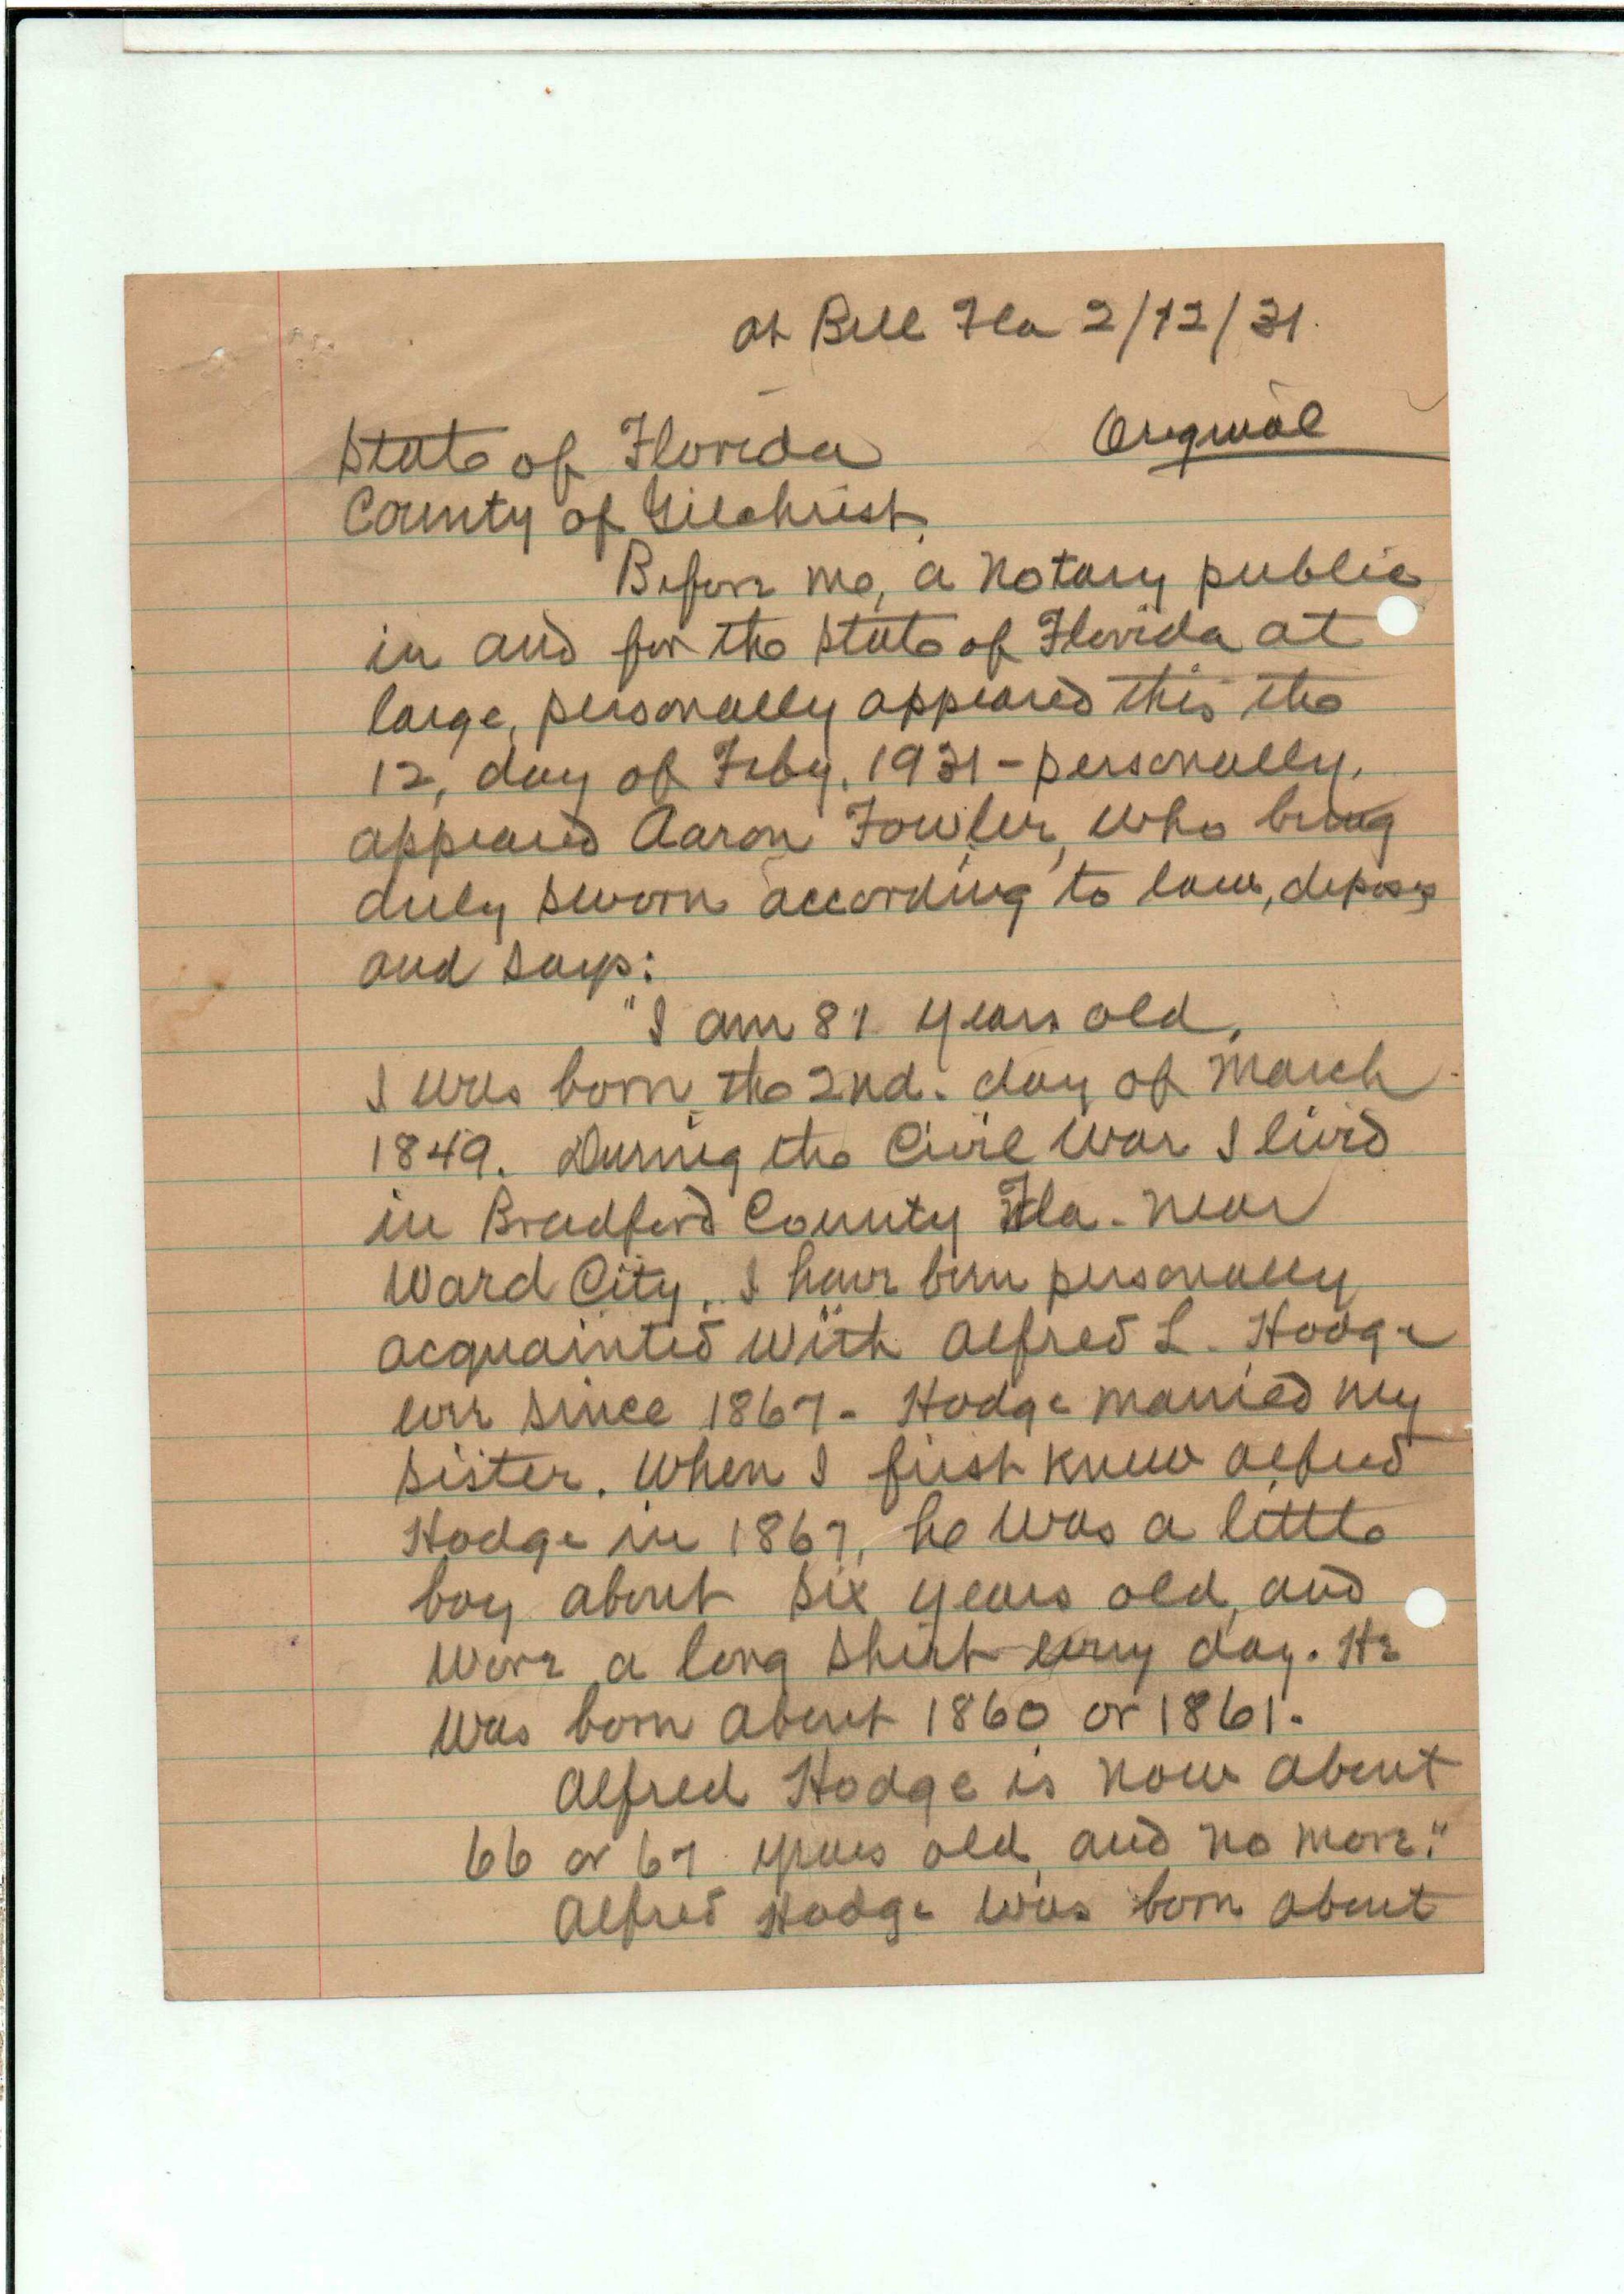 at Bell Fla 2/12/31.
Original
State of Florida
County of Gilchrist.
Before me, a Notary public
in and for the State of Florida at
large, personally appeared this the
12, day of Feby, 1931 - personally,
appeared Aaron Fowler, who being
duly sworn according to law, deposes
and says:
"I am 81 years old,
I was born the 2nd. day of March
1849. During the Civil War I lived
in Bradford County Fla. near
Ward City. I have been personally
acquainted with Alfred L. Hodge
ever since 1867 - Hodge married my
sister. When I first knew Alfred
Hodge in 1867, he was a little
boy about six years old, and
wore a long shirt every day. He
was born about 1860 or 1861.
Alfred Hodge is now about
66 or 67 years old, and no more."
Alfred Hodge was born about